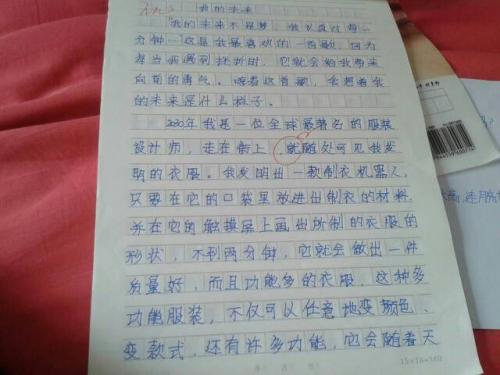 我的未来
"我的未来不是梦，我认真过每一
分钟…"这是我最喜欢的一首歌，因为
每当我遇到挫折时，它就会给我带来
向前的勇气。听着这首歌，会想着我
的未来是什么样子。
2030年我是一位全球最著名的服装
设计师，走在街上，就随处可见我发
明的衣服。我发明出一款制衣机器人，
只要在它的口袋里放进出制衣的材料，
并在它的触摸屏上画出所制的衣服的
形状，不到两分钟，它就会做出一件
质量好，而且功能多的衣服，这种多
功能服装，不仅可以任意地变颜色、
变款式，还有许多功能，它会随着天
15×16=240